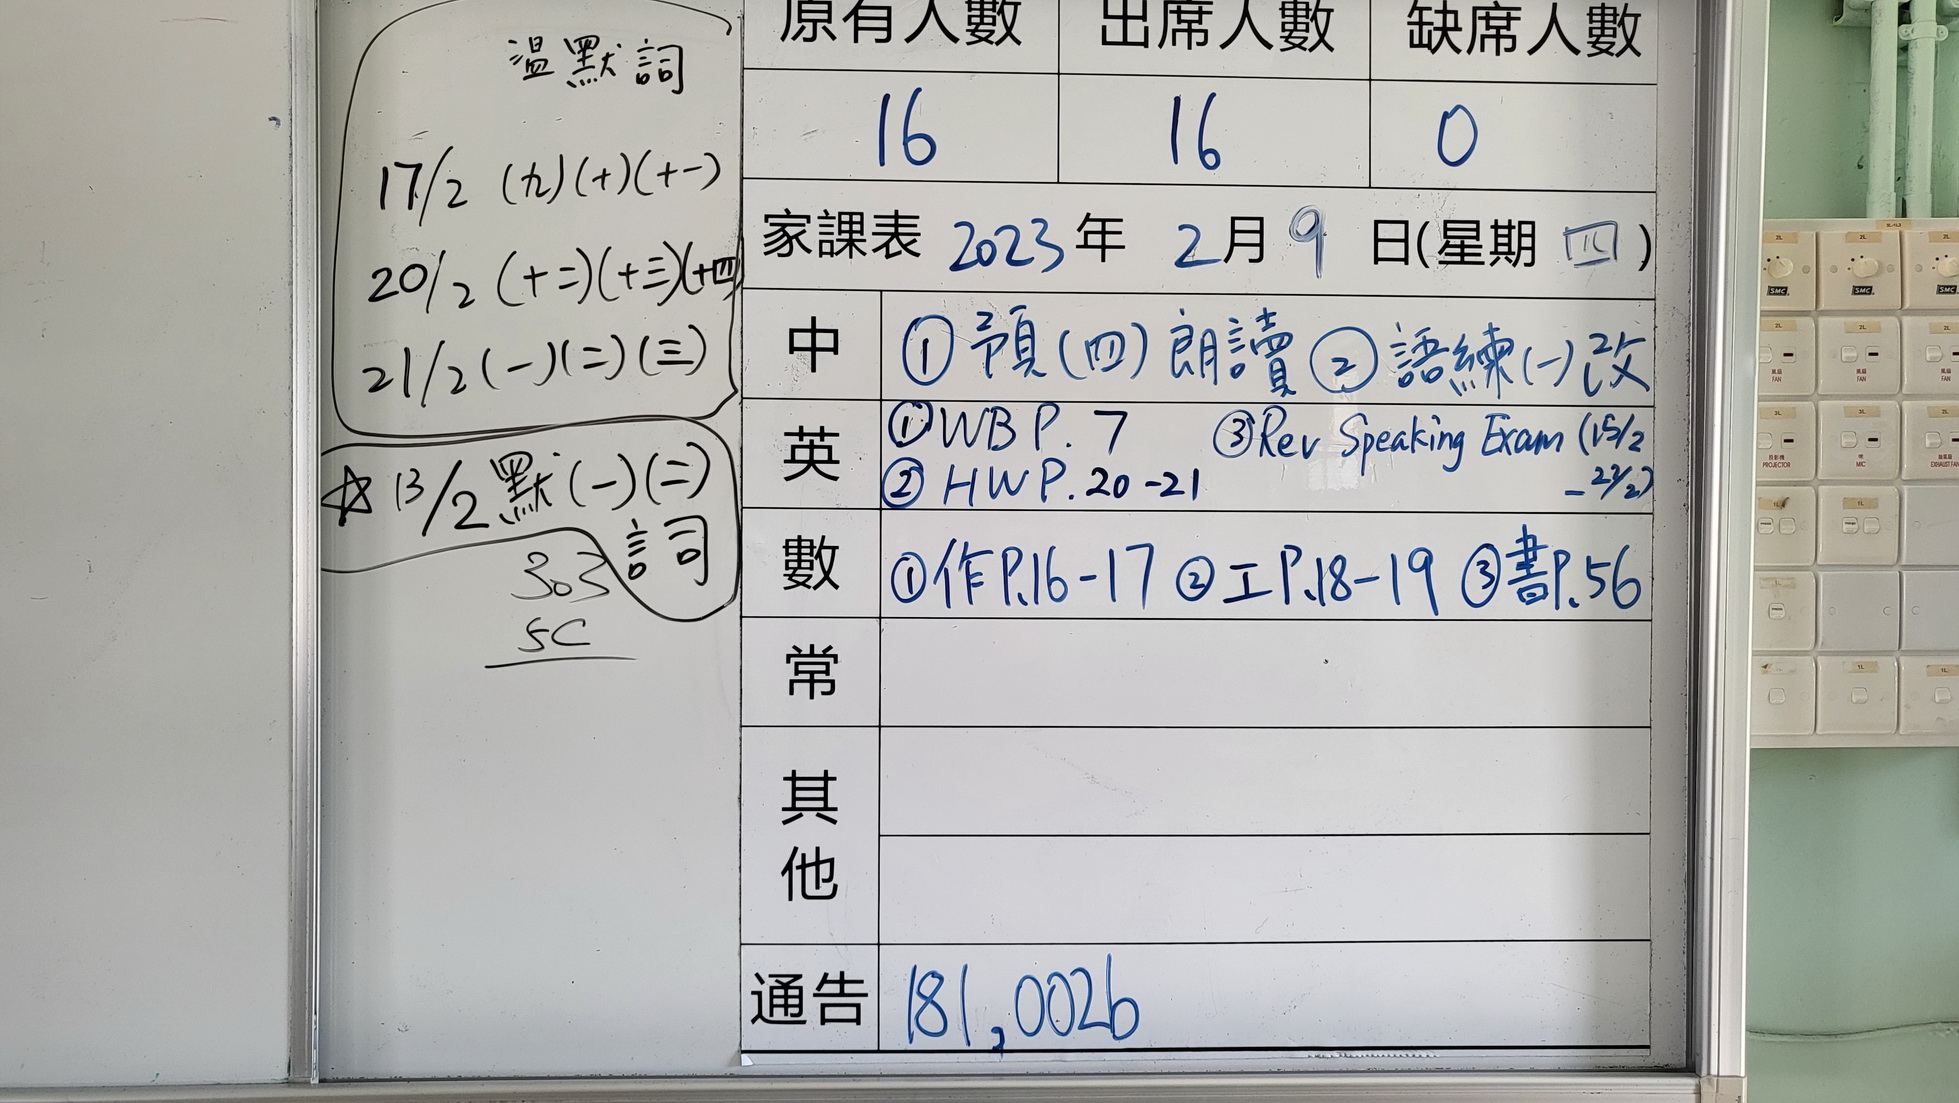 溫默詞
17/2 (九)(十)(十一)
20/2 (十二)(十三)(十四)
21/2 (一)(二)(三)
☆ 13/2 默(一)(二)
詞
303
5C
原有人數 出席人數 缺席人數
16 16 0
家課表 2023年 2月 9日(星期四)
中 ①預(四)朗讀 ②語練(一)改
英 ①WB P. 7 ③Rev Speaking Exam (15/2
②HW P. 20-21 -22/2)
數 ①作P.16-17 ②工P.18-19 ③書P.56
常
其他
通告 181,0026
SMC SMC SMC
風扇 FAN
風扇 FAN
投影機 PROJECTOR
咪 MIC
抽氣扇 EXHAUST FAN